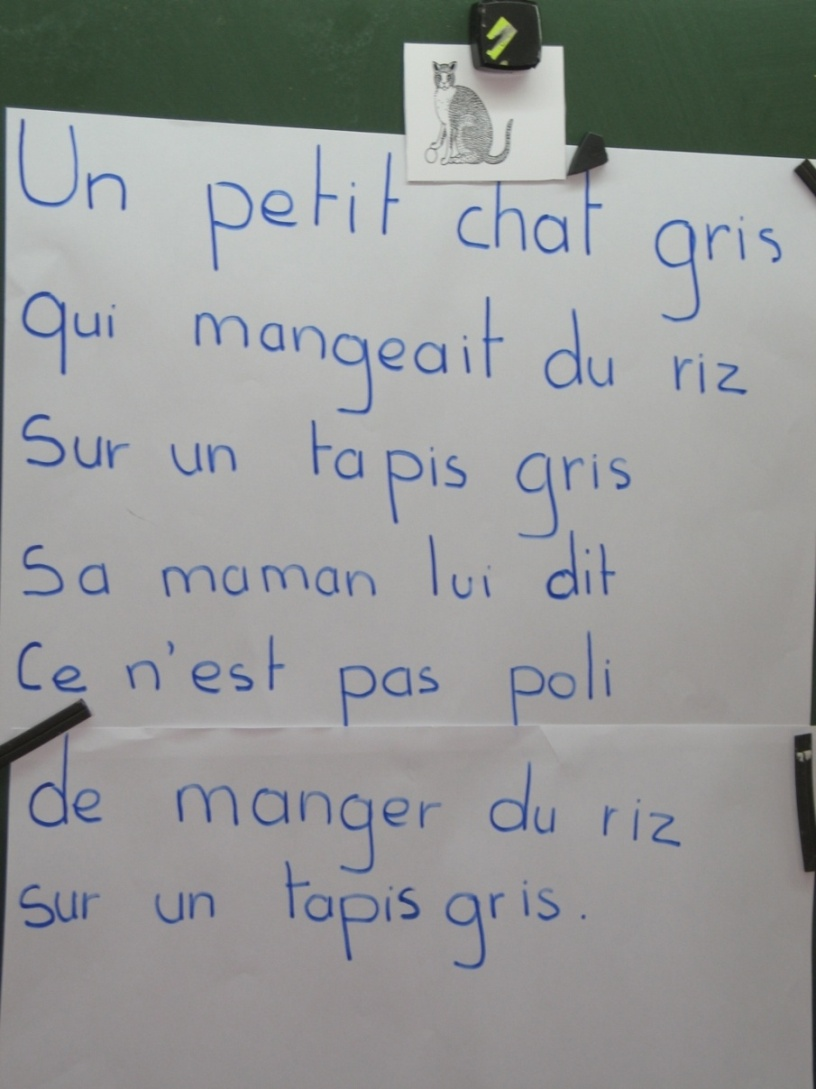 Un petit chat gris
qui mangeait du riz
Sur un tapis gris
Sa maman lui dit
Ce n'est pas poli
de manger du riz
sur un tapis gris.